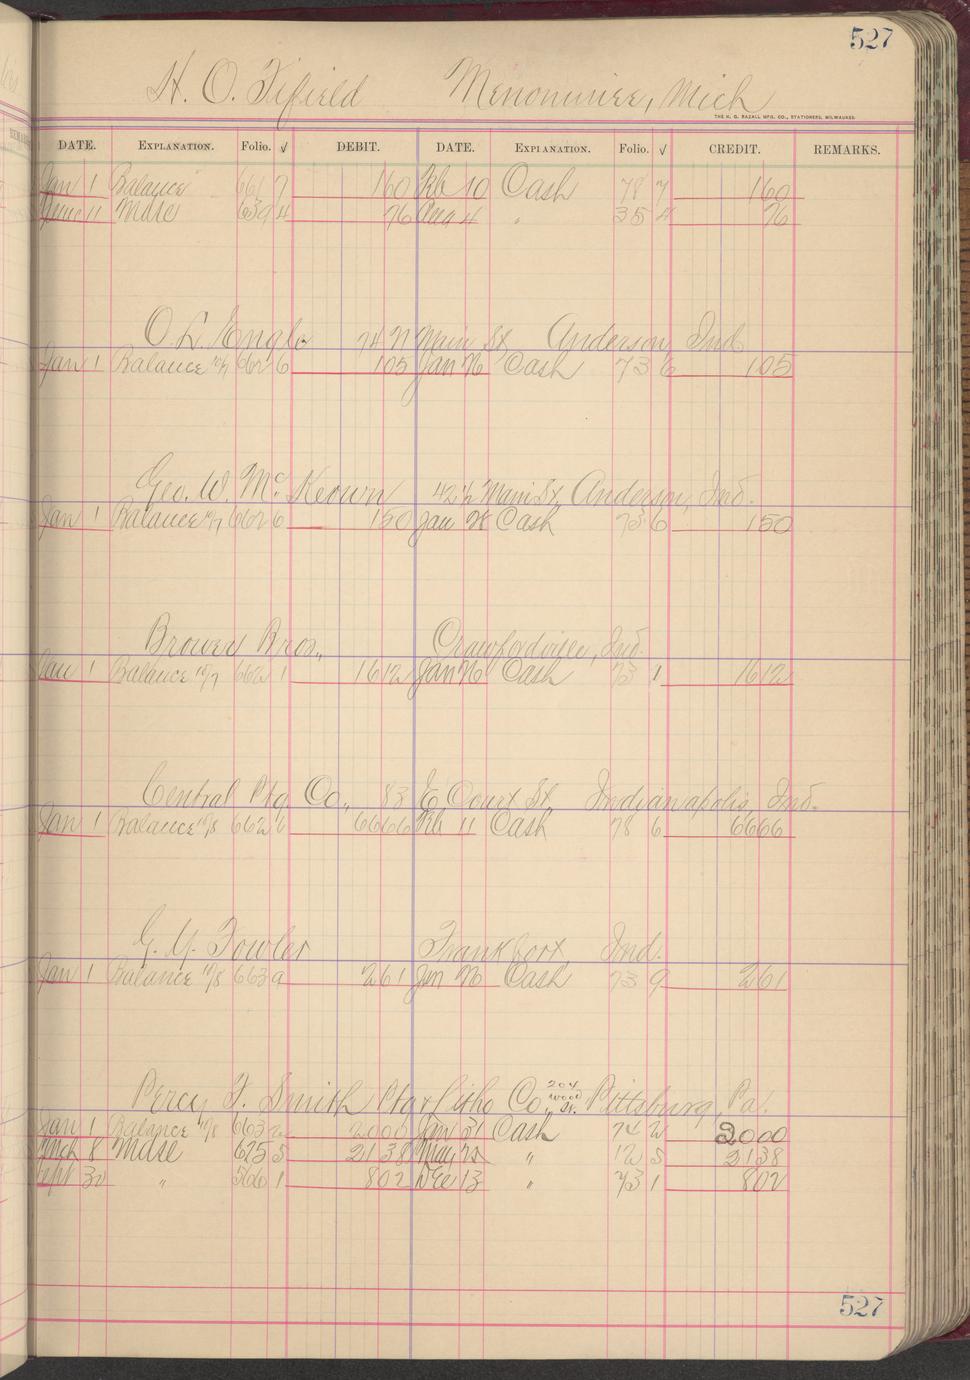 527
H. O. Fifield Menominee, Mich
THE H. G. RAZALL MFG. CO., STATIONERS, MILWAUKEE.
DATE. EXPLANATION. Folio. √ DEBIT. DATE. EXPLANATION. Folio. √ CREDIT. REMARKS.
Jan 1 Balance 661 7 160 Feb 10 Cash 78 7 160
June 11 Mdse 639 4 76 Aug 4 " 35 4 76
O. L. Engle 74 N Main St Anderson Ind
Jan 1 Balance 12/7 662 6 105 Jan 26 Cash 73 6 105
Geo. W. McKeown 42 1/2 Main St, Anderson, Ind.
Jan 1 Balance 662 6 150 Jan 26 Cash 73 6 150
Brower Bros., Crawfordville, Ind.
Jan 1 Balance 12/7 662 1 1612 Jan 26 Cash 73 1 1612
Central Ptg Co., 83 E Court St. Indianapolis, Ind.
Jan 1 Balance 12/8 662 6 6666 Feb 11 Cash 78 6 6666
G. Y. Fowler Frankfort, Ind.
Jan 1 Balance 663 9 261 Jan 26 Cash 73 9 261
Percy F. Smith Ptg & Litho Co., 204 Wood St. Pittsburg, Pa.
Jan 1 Balance 663 2 2000 Jan 31 Cash 74 2 2000
Mch 8 Mdse 625 5 2138 May 12 " 12 5 2138
Sept 30 " 566 1 802 Dec 13 " 73 1 802
527